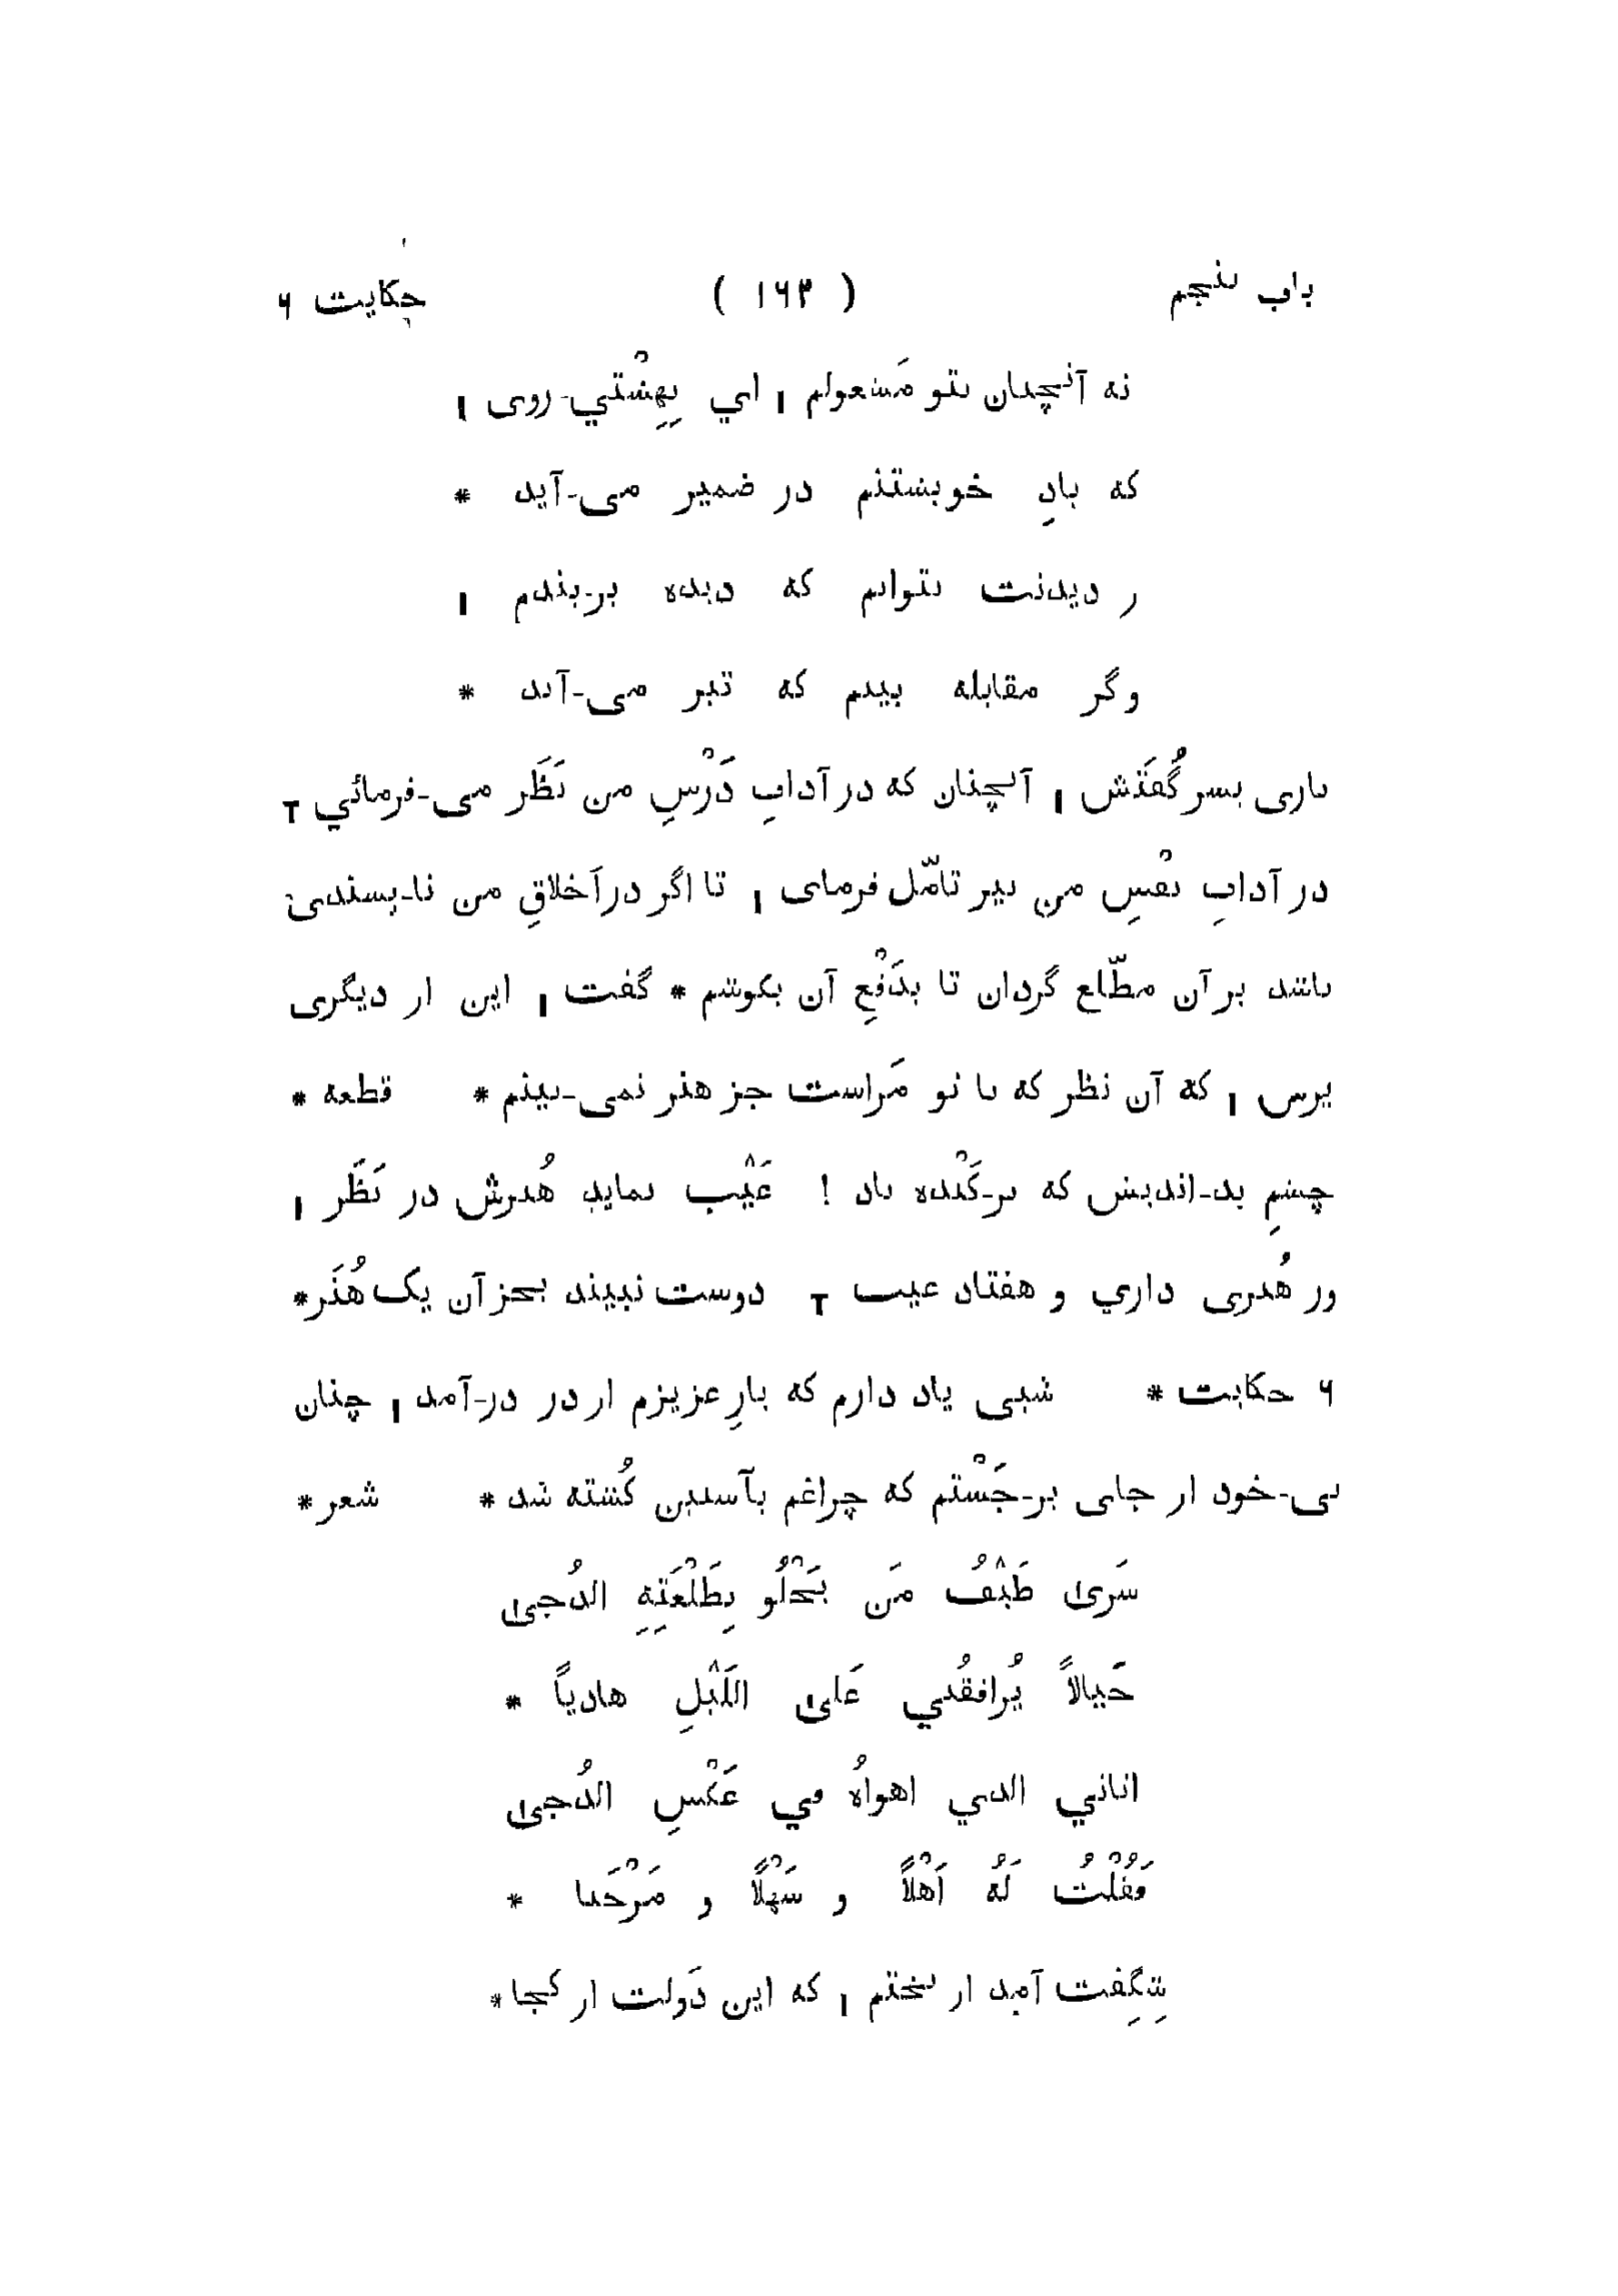 باب پنجم ( ۱۶۳ ) حکایت ۶
نه آنچنان بتو مَشغولم ا اي بِهِشْتي-روی ا
که یادِ خویشتنم در ضمیر می-آید *
ز دیدنت نتوانم که دیده بر-بندم ا
و گر مقابله بینم که تیر می-آید *
باری پسر گُفتَش ا آنچنان که در آدابِ دَرْسِ من نَظَر می-فرمائي ٢
در آدابِ نفْسِ من نیز تامّل فرمای ا تا اگر در اَخلاقِ من نا-پسندی
باشد بر آن مطّلع گردان تا بدَفْعِ آن بکوشم * گفت ا این از دیگری
پرس ا که آن نظر که با تو مَراست جز هنر نمی-بینم * قطعه *
چشمِ بد-اندیش که بر-کَنْده باد ! عَیْب نماید هُنرش در نَظَر ا
ور هُنری داري و هفتاد عیب ٢ دوست نبیند بجز آن یک هُنَر *
۶ حکایت * شبی یاد دارم که یارِ عزیزم از در در-آمد ا چنان
بی-خود از جای بر-جَسْتم که چراغم بآستین کُشته شد * شعر *
سَرىٰ طَيْفُ مَن يَجْلُو بِطَلْعَتِهِ الدُجىٰ
خَيالاً يُرافقُني عَلىٰ اللَيْلِ هادياً *
اتاني الذي اهواهُ في عَكْسِ الدُجىٰ
فَقُلْتُ لَهُ اَهْلاً و سَهْلاً و مَرْحَبا *
شِگِفت آمد از بختم ا که این دَولت از کجا *